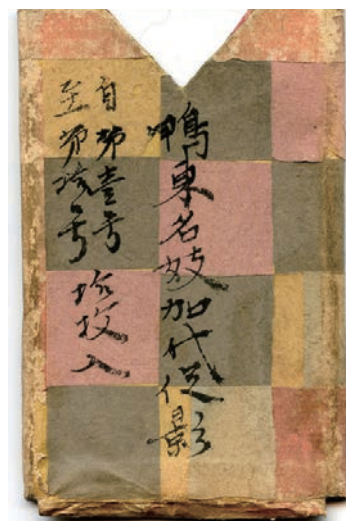 鴨東名妓加代之影
自第壱号
至第拾号
拾枚入